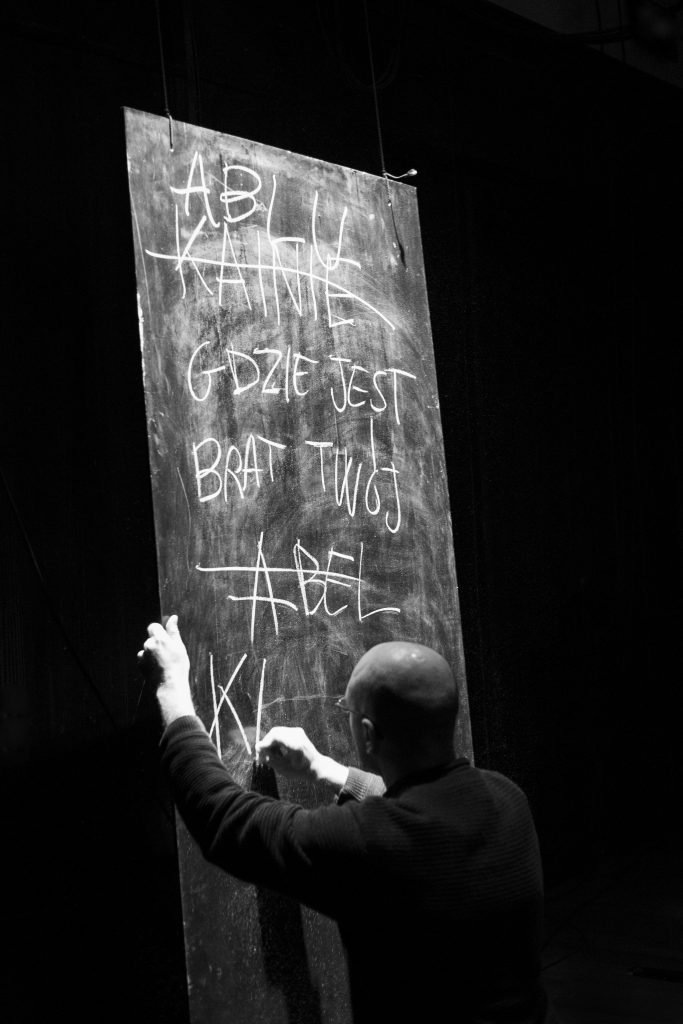 ABLU
KAINIE
GDZIE JEST
BRAT TWÓJ
ABEL
K